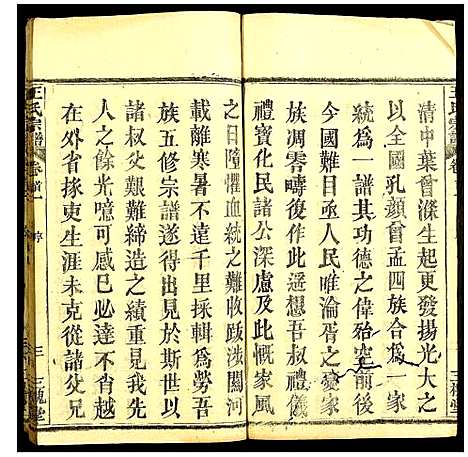 清中葉曾滌生起更發揚光大之
以全國孔顏曾孟四族合為一家
統為一譜其功德之偉殆空前後
今國難日亟人民唯淪胥之憂家
族凋零疇復作此遥想吾儀徵一
禮寶化民諸公深慮此慨家風
之日墮懼血統之難收跋涉關河
載離寒暑不遠千里採輯為勞吾
族五修宗譜遂得出見於斯世以
諸叔父艱難締造之績重見我先
人之餘光噫可感已必達不肖越
在外省掾吏生涯未克從諸父兄
王氏宗譜
卷首一
序
三
三槐堂